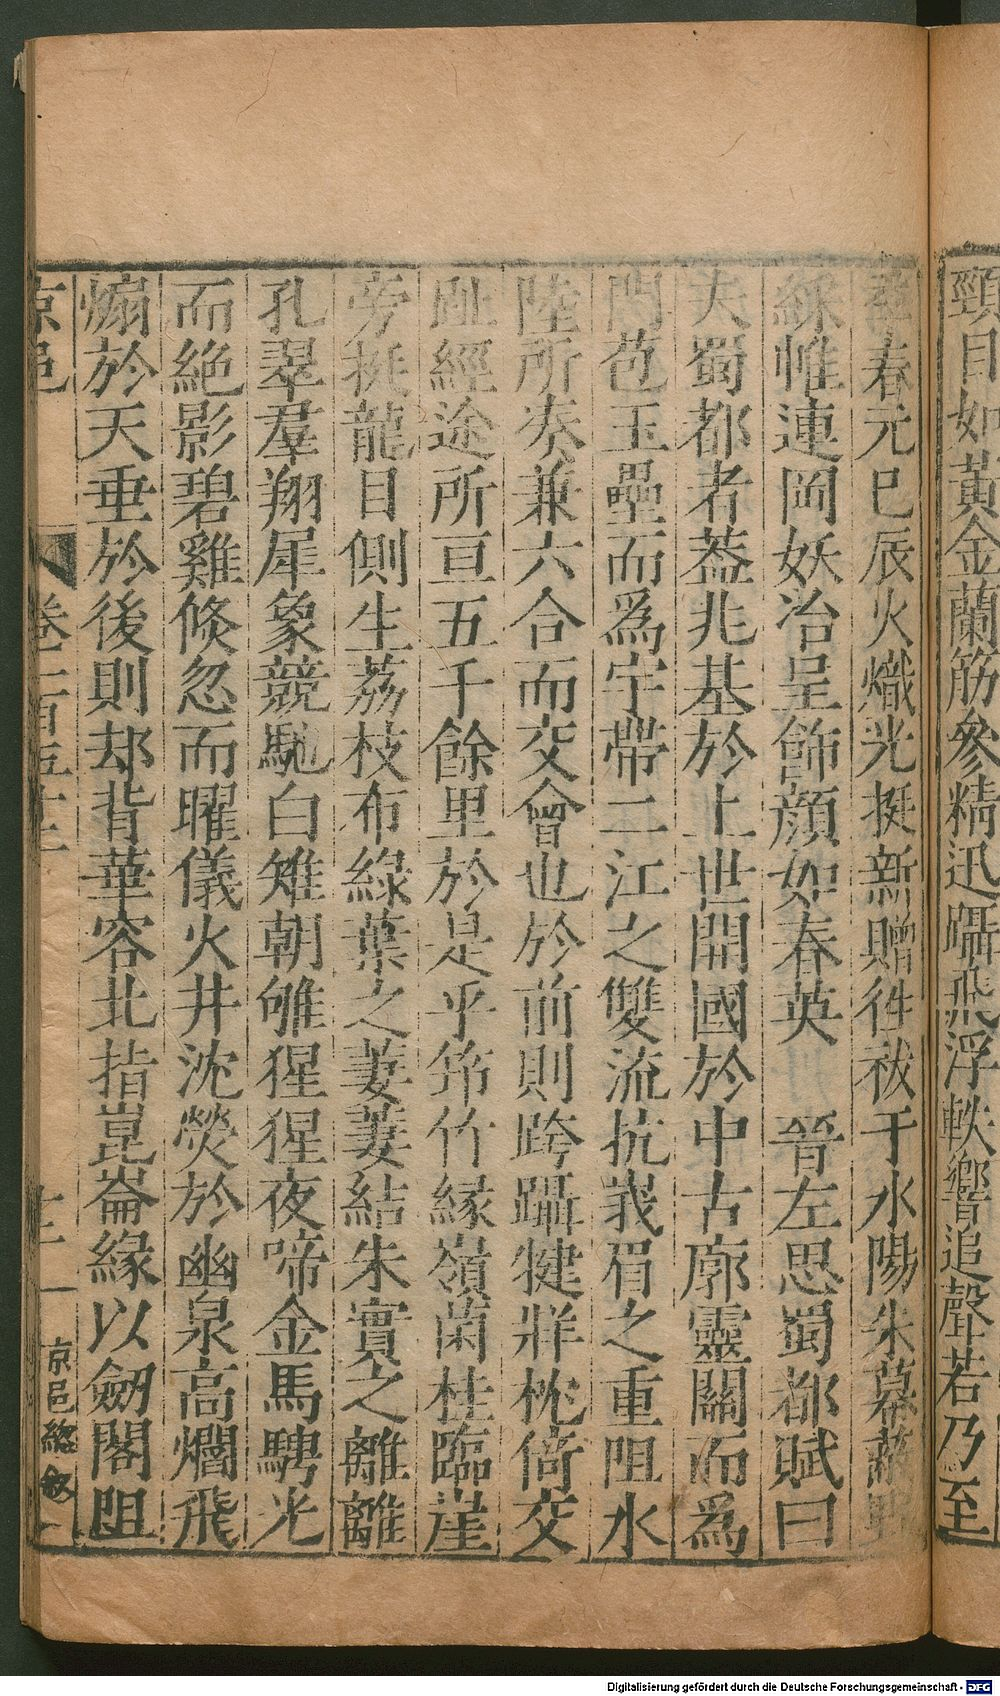 頸目如黃金蘭筋參精迅躡飛浮軼響追聲若乃至
春元巳辰火熾光挺新贈徃祓于水陽朱幕蔽野
綵帷連岡妖冶呈飾顏如春英　晉左思蜀都賦曰
夫蜀都者葢兆基於上世開國於中古廓靈關而爲
門苞玉壘而爲宇帶二江之雙流抗峩眉之重阻水
陸所湊兼六合而交會也於前則跨躡犍牂枕倚交
趾經途所亘五千餘里於是乎筇竹緣嶺菌桂臨崖
旁挺龍目側生荔枝布綠葉之萋萋結朱實之離離
孔翠羣翔犀象競馳白雉朝雊猩猩夜啼金馬騁光
而絶影碧雞倐忽而曜儀火井沈熒於幽泉高爓飛
煽於天垂於後則却背華容北指崑崙緣以劒閣阻
京邑 卷二百五十二 十二 京邑總敘二
Digitalisierung gefördert durch die Deutsche Forschungsgemeinschaft - DFG